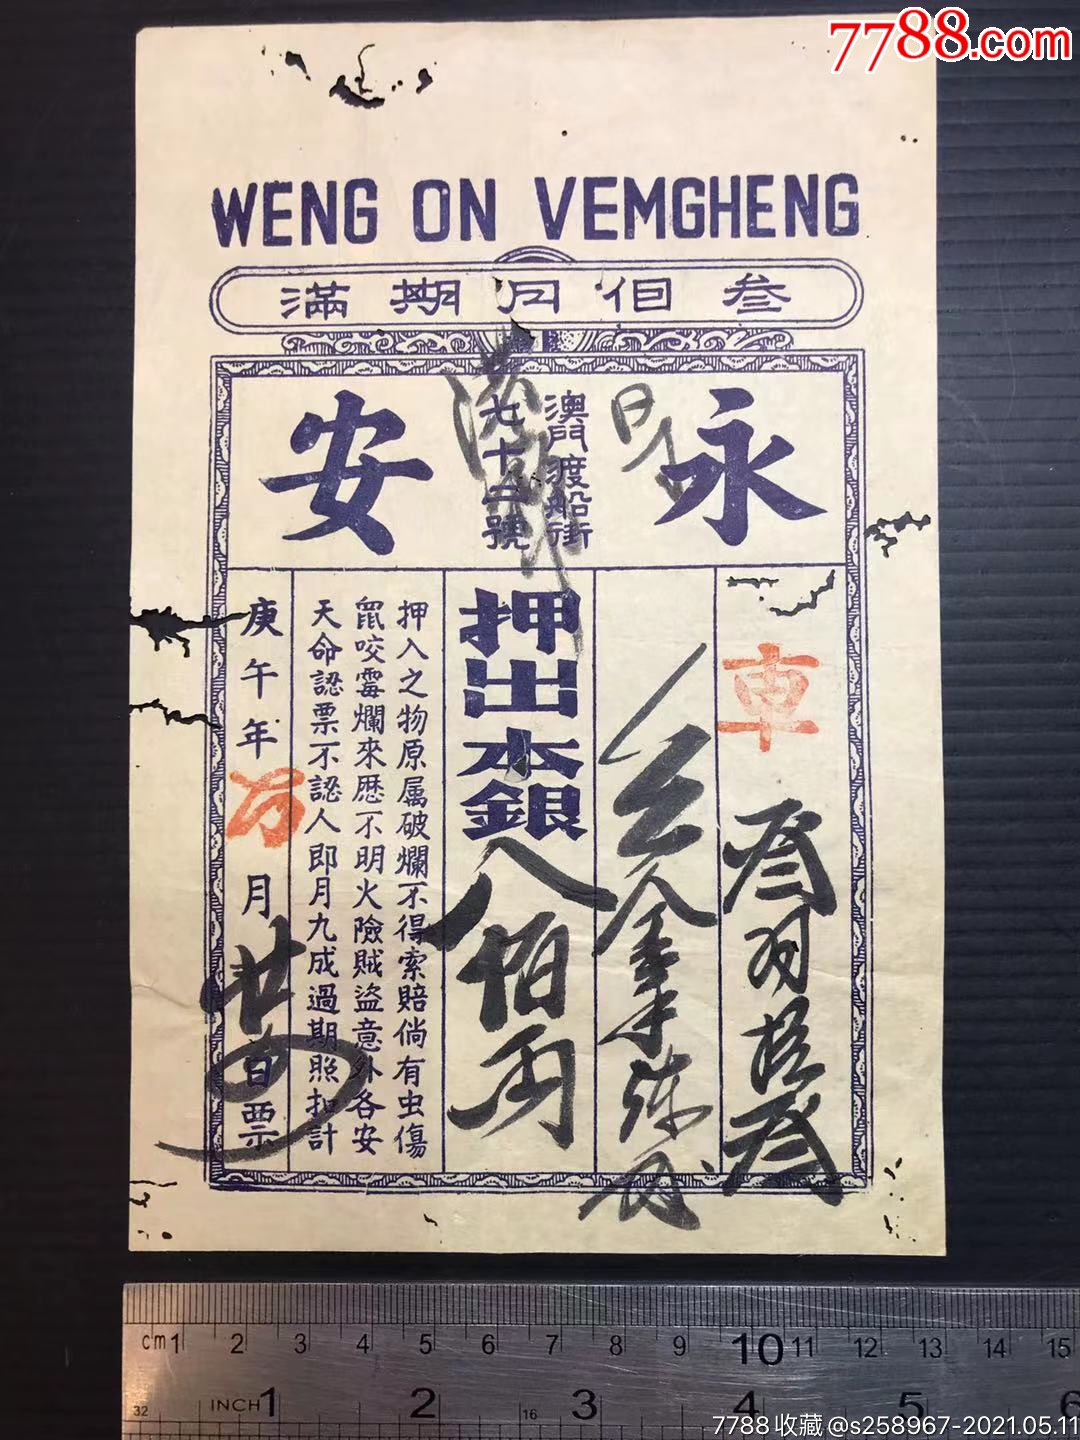 7788.com
WENG ON VEMGHENG
叁個月期滿
永安
澳門渡船街
七十二號
車
押出本銀
八佰
押入之物原属破爛不得索賠倘有虫傷
鼠咬霉爛來歷不明火險賊盜意外各安
天命認票不認人即月九成過期照扣計
庚午年
月廿
日票
cm 1 2 3 4 5 6 7 8 9 10 11 12 13 14 15
32 INCH 1 2 16 3 4 5 6
7788收藏@s258967-2021.05.11